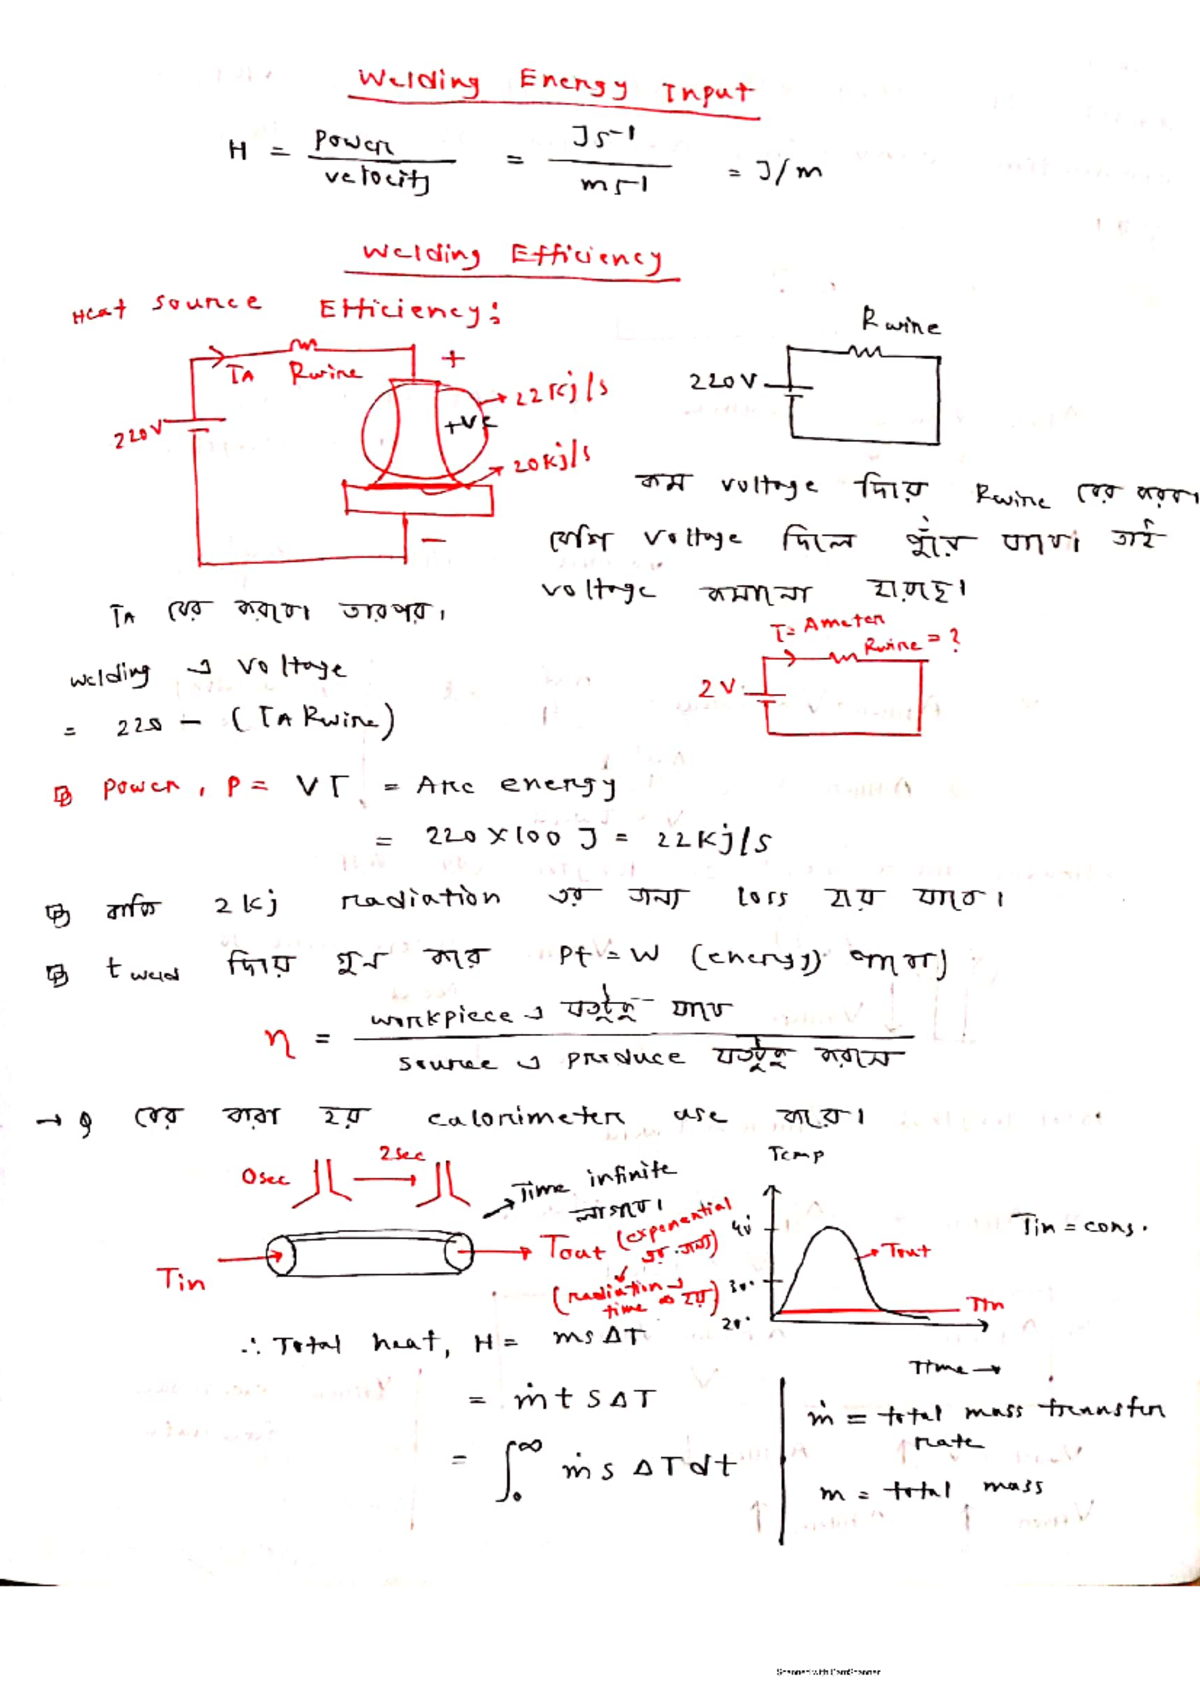 Welding Energy Input
H = Power / velocity = Js⁻¹ / ms⁻¹ = J/m
Welding Efficiency
Heat source Efficiency:
I_A Rwire
+
22 kj/s
+ve
220V
20kj/s
−
Rwire
220V
কম voltage দিয়ে Rwire বের করব।
বেশি voltage দিলে পুঁড়ে যাবে। তাই
voltage কমানো হয়েছে।
I_A বের করবো তারপর।
I = Ameter
Rwire = ?
2V
welding এ voltage
= 220 − (I_A Rwire)
Power, P = VI = Arc energy
= 220 × 100 J = 22 kj/s
বাকি 2 kj radiation এর জন্য loss হয়ে যাবে।
t weld দিয়ে গুন করে Pt = W (energy) পাব।
η = workpiece এ যতটুকু যাবে / source এ produce যতটুকু করলো
→ বের করা হয় calorimeter use করে।
0sec 2sec
Time infinite লাগবে।
Tin
Tout (exponential এর জন্য)
(radiation এ time ∞ হয়)
Temp
40°
30°
20°
Tout
Tin
Time →
Tin = cons.
∴ Total heat, H = ms ΔT
= ṁ t s ΔT
= ∫₀^∞ ṁ s ΔT dt
ṁ = total mass transfer
rate
m = total mass
Scanned with CamScanner